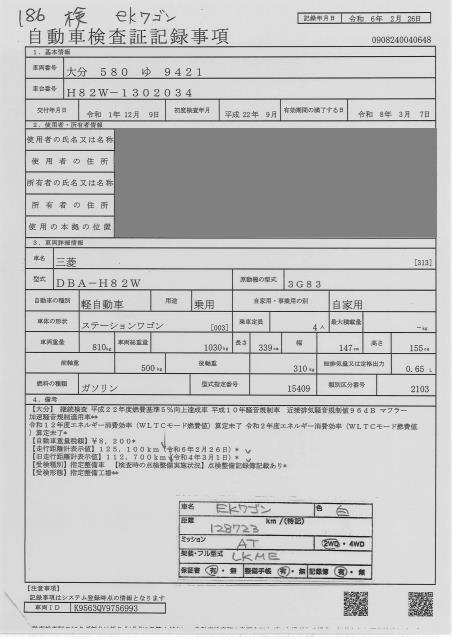 186 検 ekワゴン
記録年月日 令和 6年 2月 26日
自動車検査証記録事項
0908240040648
1. 基本情報
車両番号 大分 580 ゆ 9421
車台番号 H82W-1302034
交付年月日 令和 1年12月 9日 初度検査年月 平成22年 9月 有効期間の満了する日 令和 8年 3月 7日
2. 使用者・所有者情報
使用者の氏名又は名称
使用者の住所
所有者の氏名又は名称
所有者の住所
使用の本拠の位置
3. 車両詳細情報
車名 三菱 [313]
型式 DBA-H82W 原動機の型式 3G83
自動車の種別 軽自動車 用途 乗用 自家用・事業用の別 自家用
車体の形状 ステーションワゴン [003] 乗車定員 4人 最大積載量 -kg
車両重量 810kg 車両総重量 1030kg 長さ 339cm 幅 147cm 高さ 155cm
前軸重 500kg 後軸重 310kg 総排気量又は定格出力 0.65 L
燃料の種類 ガソリン 型式指定番号 15409 類別区分番号 2103
4. 備考
【大分】 継続検査 平成22年度燃費基準5%向上達成車 平成10年騒音規制車 近接排気騒音規制値96dB マフラー
加速騒音規制適用車**
令和12年度エネルギー消費効率(WLTCモード燃費値)算定未了 令和2年度エネルギー消費効率(WLTCモード燃費値
)算定未了*
【自動車重量税額】¥8,200*
【走行距離計表示値】125,100km(令和6年2月26日)*
【旧走行距離計表示値】112,700km(令和4年3月1日)*
【受検種別】指定整備車 【検査時の点検整備実施状況】点検整備記録簿記載あり*
【受検形態】指定整備工場**
車名 EKワゴン 色 白
距離 128723 km/(特記)
ミッション AT 2WD・4WD
架装・フル型式 LKME
保証書 有・無 整備手帳 有・無 記録簿 有・無
【注意事項】
記録事項はシステム登録時点の情報となります
車両ID K9563QY9756993